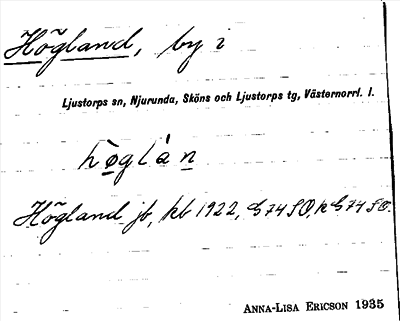 Högland, by i
Ljustorps sn, Njurunda, Sköns och Ljustorps tg, Västernorrl. l.
hø̀glán
Högland jb, kb 1922, G 74 SO, k G 74 SO.
ANNA-LISA ERICSON 1935